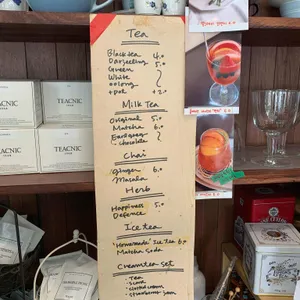 Tea
Black tea 4.0
Darjeeling 5.0
Green
White
oolong
+Dol +2.0
Milk Tea
Original 5.0
Matcha 6.0
Earl grey
-chocolate
Chai
Ginger 6.0
Masala
Herb
Happiness 5.0
Defence
Ice tea
Homemade Ice tea 6.0
Matcha Soda
Cream tea set
- Tea
- Scone
- clotted cream
- strawberry jam
TEACNIC
TEACNIC
TEACNIC
TEACNIC